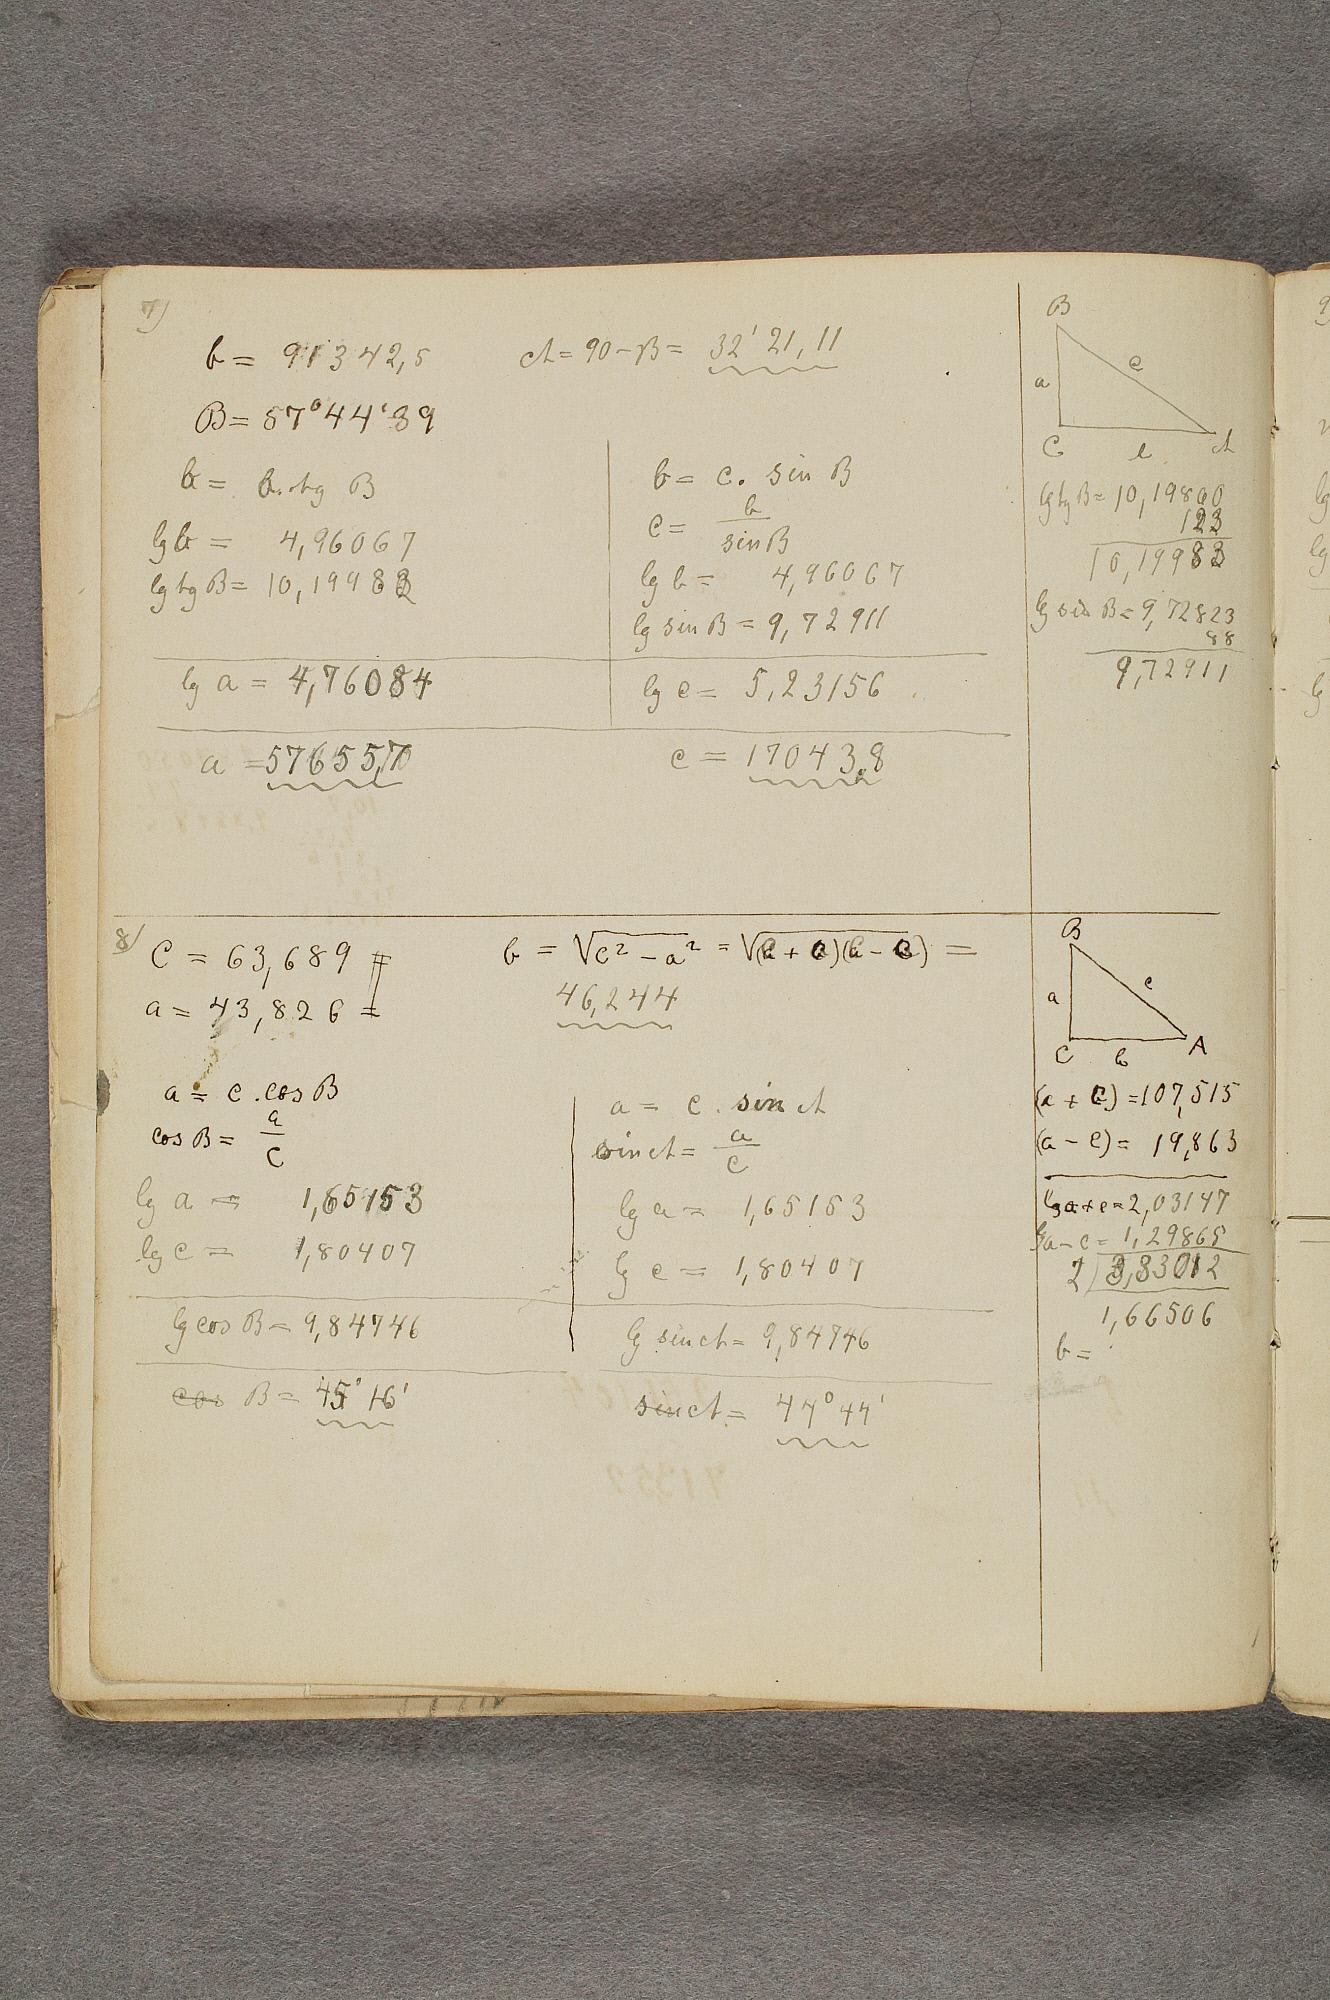 7)
b = 91342,5 A = 90 - B = 32' 21, 11
B = 57° 44' 39
b = b. tg B
lg b = 4,96067
lg tg B = 10,19983
lg a = 4,76084
a = 57655,7
b = c. sin B
c = b / sin B
lg b = 4,96067
lg sin B = 9,72911
lg c = 5,23156
c = 170438
B
a c
C b A
lg tg B = 10,19860
123
10,19983
lg sin B = 9,72823
88
9,72911
8)
C = 63,689 =
a = 43,826 =
b = √c² - a² = √(c + a)(c - a) =
46,244
a = c . cos B
cos B = a / c
lg a = 1,65153
lg c = 1,80407
lg cos B = 9,84746
cos B = 45° 16'
a = c . sin A
sin A = a / c
lg a = 1,65153
lg c = 1,80407
lg sin A = 9,84746
sin A = 44° 44'
B
a c
C b A
(a + c) = 107,515
(a - c) = 19,863
lg a+c = 2,03147
lg a-c = 1,29865
2) 3,33012
1,66506
b =